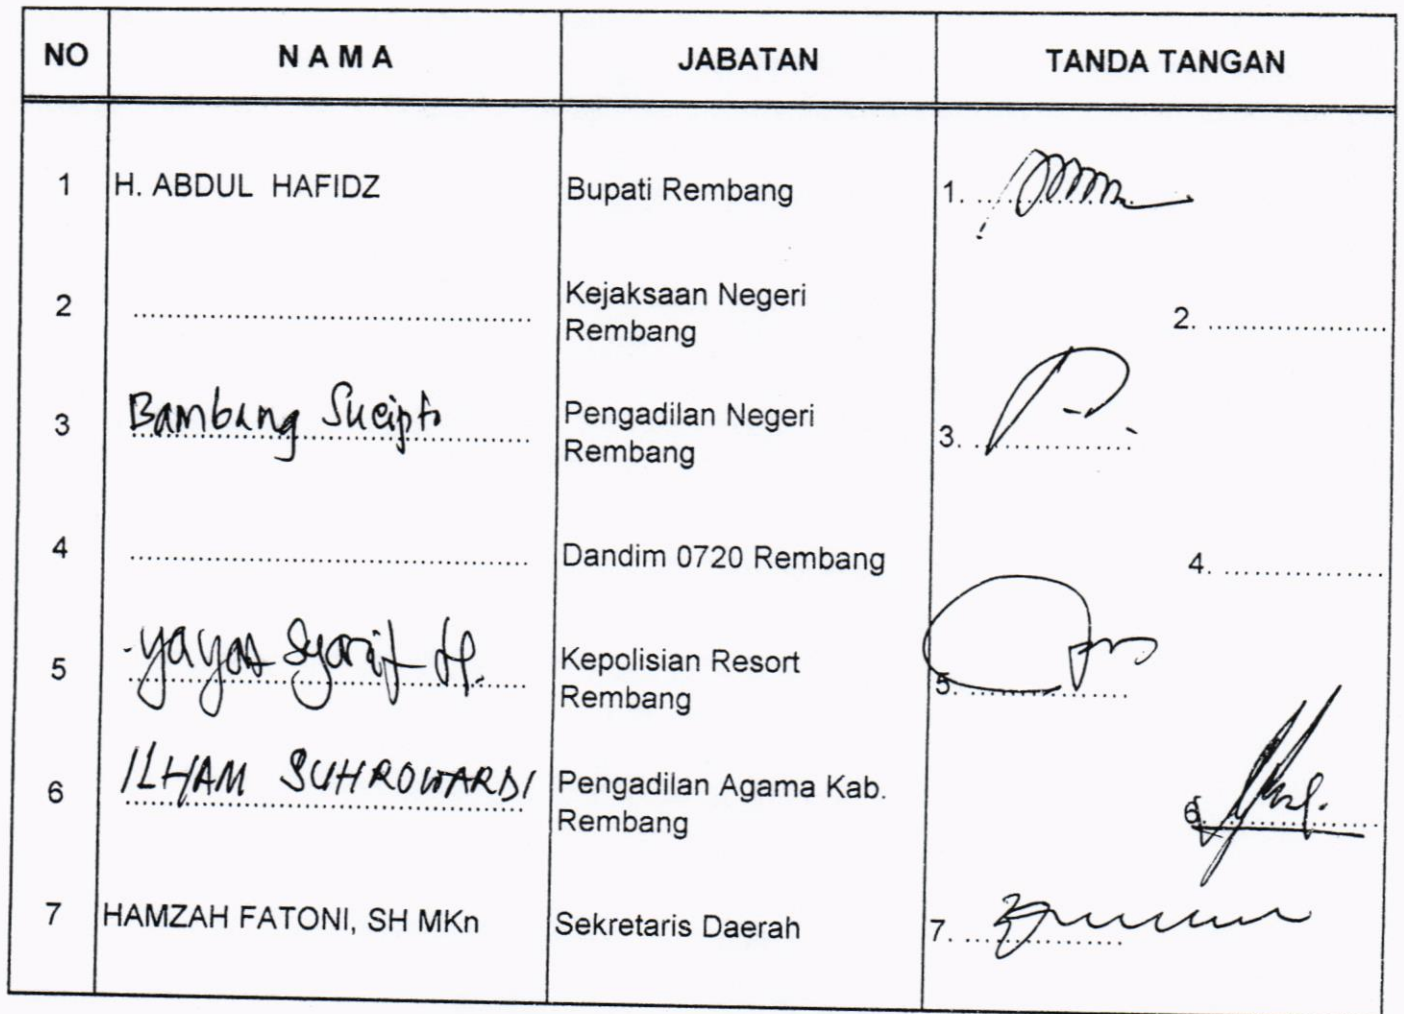 NO NAMA JABATAN TANDA TANGAN
1 H. ABDUL HAFIDZ Bupati Rembang 1. ....................
2 ........................................ Kejaksaan Negeri
Rembang 2. ....................
3 Bambang Sucipto Pengadilan Negeri
Rembang 3. ....................
4 ........................................ Dandim 0720 Rembang 4. ....................
5 Syarif Kepolisian Resort
Rembang 5. ....................
6 ILHAM SUHROWARDI Pengadilan Agama Kab.
Rembang 6. ....................
7 HAMZAH FATONI, SH MKn Sekretaris Daerah 7. ....................